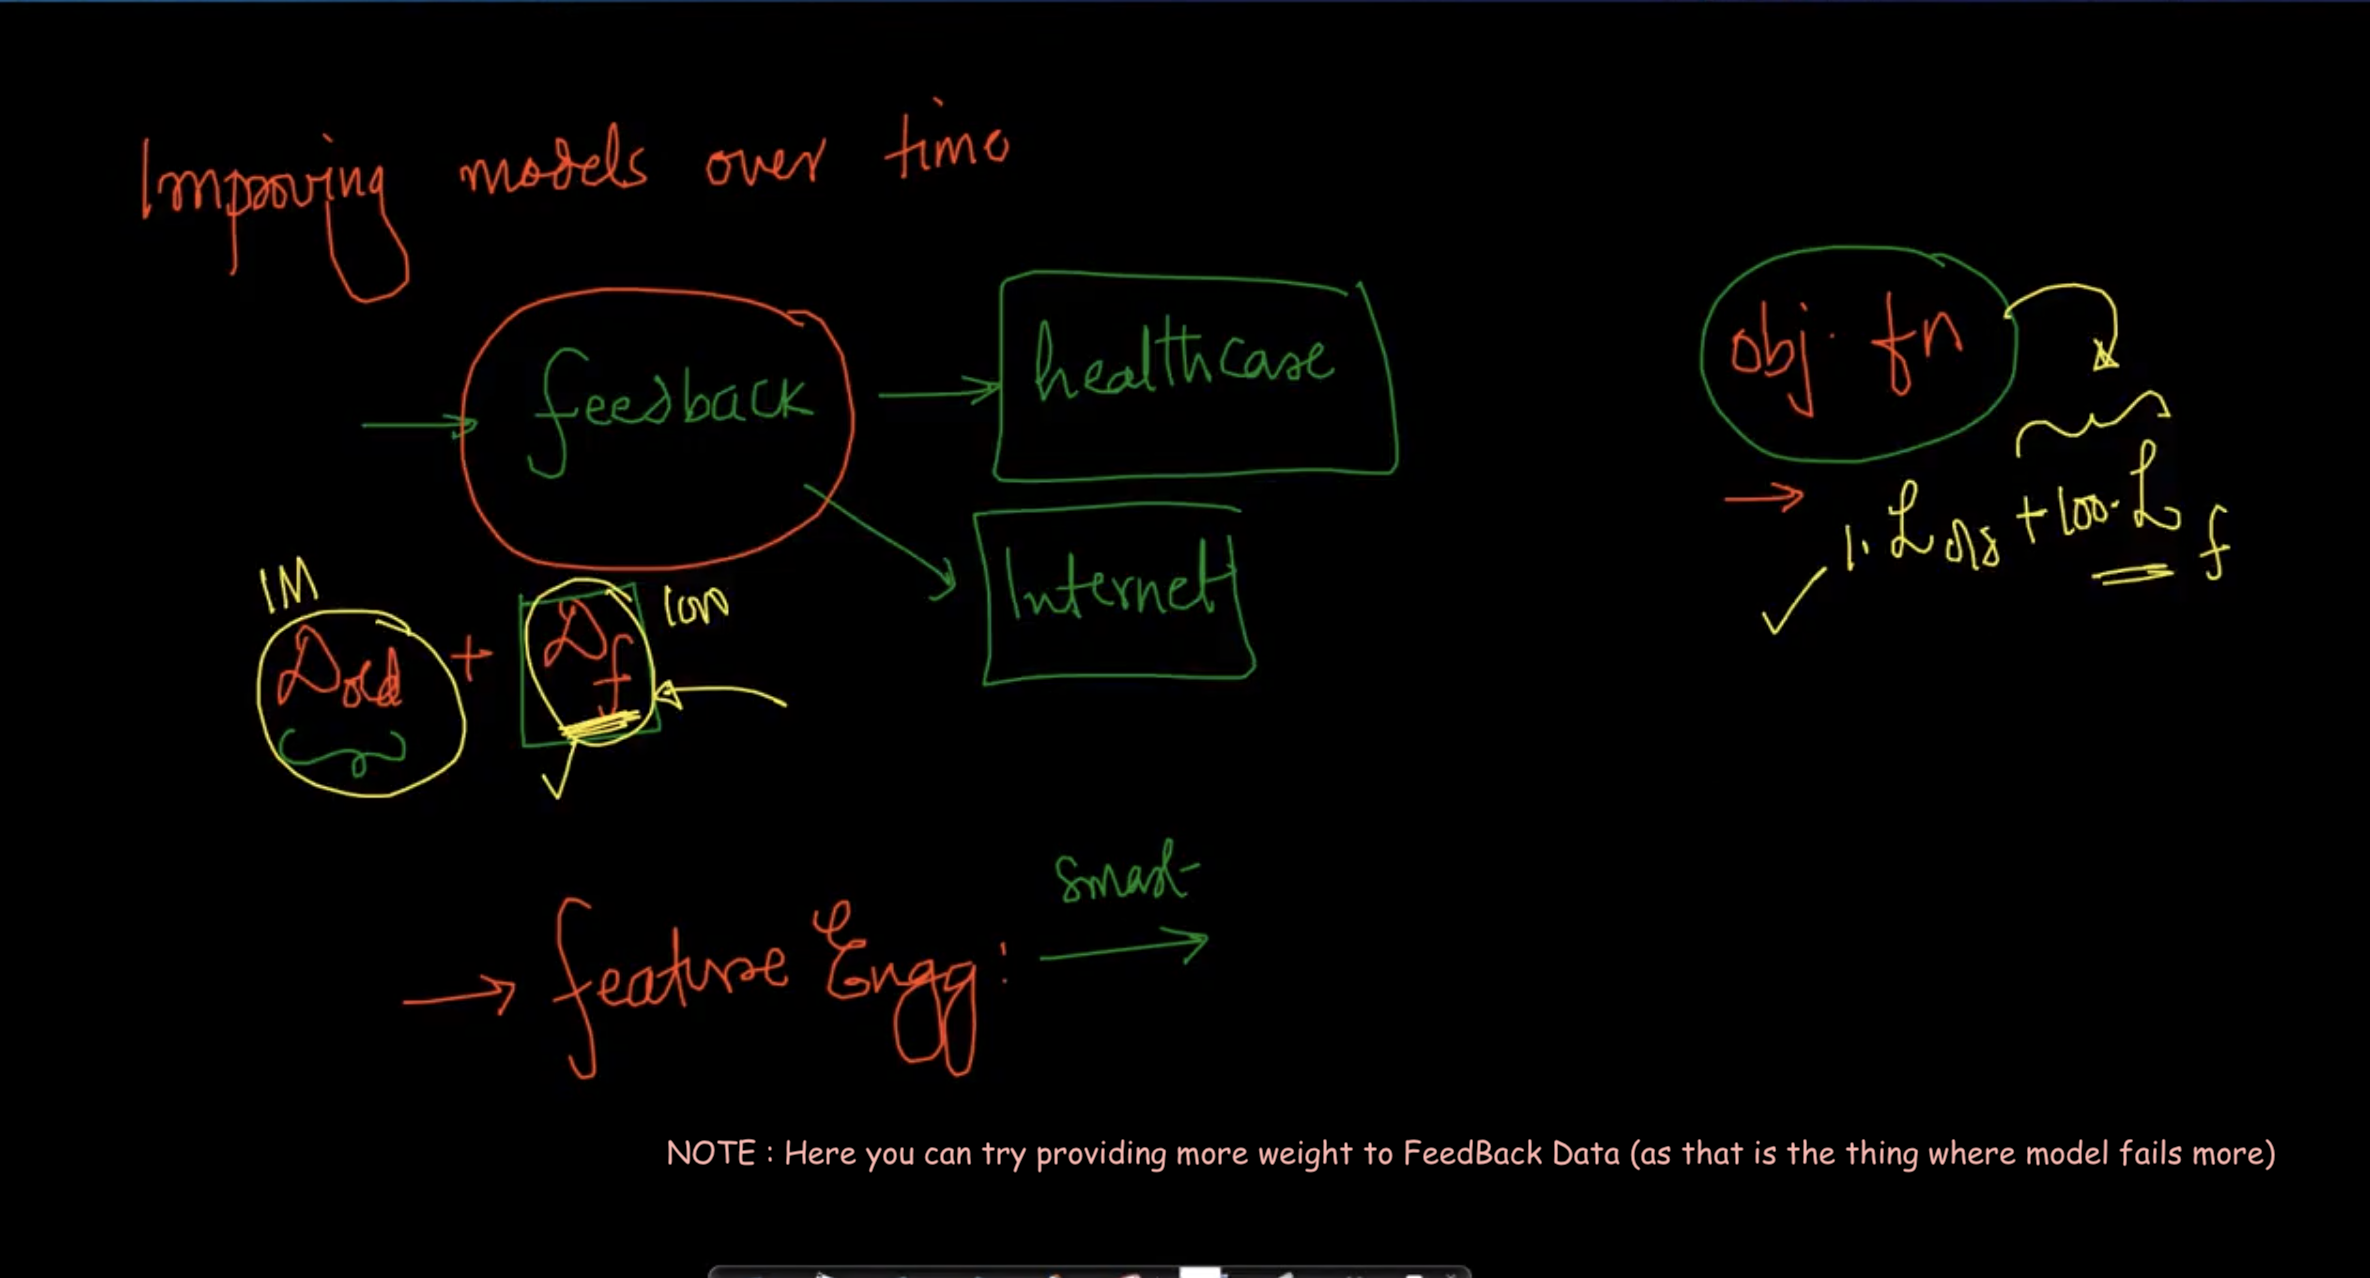 Improving models over time
feedback
healthcare
Internet
obj. fn
1. L old + 100. L f
1M
D old + D f
1000
smart
feature Engg:
NOTE : Here you can try providing more weight to FeedBack Data (as that is the thing where model fails more)